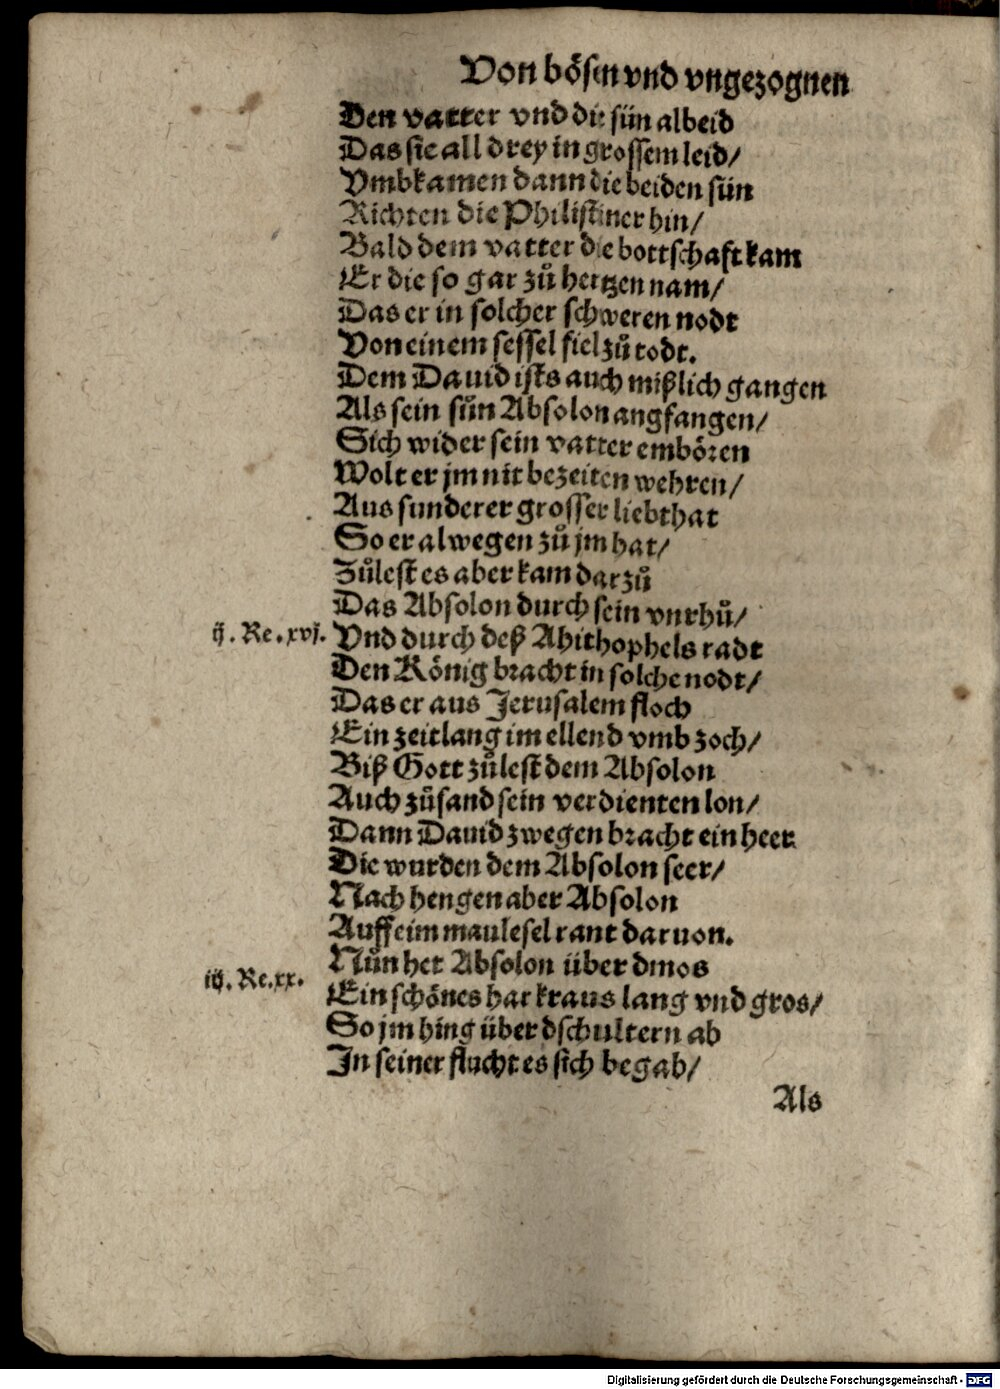 Von bösen vnd vngezognen
Den vatter vnd die sün albeid
Das sie all drey in grossem leid/
Vmbkamen dann die beiden sün
Richten die Philistiner hin/
Bald dem vatter die bottschaft kam
Er die so gar zů hertzen nam/
Das er in solcher schweren nodt
Von einem sessel fiel zů todt.
Dem Dauid ists auch mißlich gangen
Als sein sün Absolon angfangen/
Sich wider sein vatter embören
Wolt er jm nit bezeiten wehren/
Aus sunderer grosser lieb that
So er alwegen zů jm hat/
Zůlest es aber kam darzů
Das Absolon durch sein vnrhů/
ij. Re. xvj. Vnd durch deß Ahithophels radt
Den König bracht in solche nodt/
Das er aus Jerusalem floch
Ein zeitlang im ellend vmb zoch/
Biß Gott zůlest dem Absolon
Auch zůsand sein verdienten lon/
Dann Dauid zwegen bracht ein heer
Die wurden dem Absolon seer/
Nach hengen aber Absolon
Auff eim maulesel rant daruon.
Nůn het Absolon über dmos
iij. Re. xx. Ein schönes har kraus lang vnd gros/
So jm hing über dschultern ab
In seiner flucht es sich begab/
Als
Digitalisierung gefördert durch die Deutsche Forschungsgemeinschaft - DFG